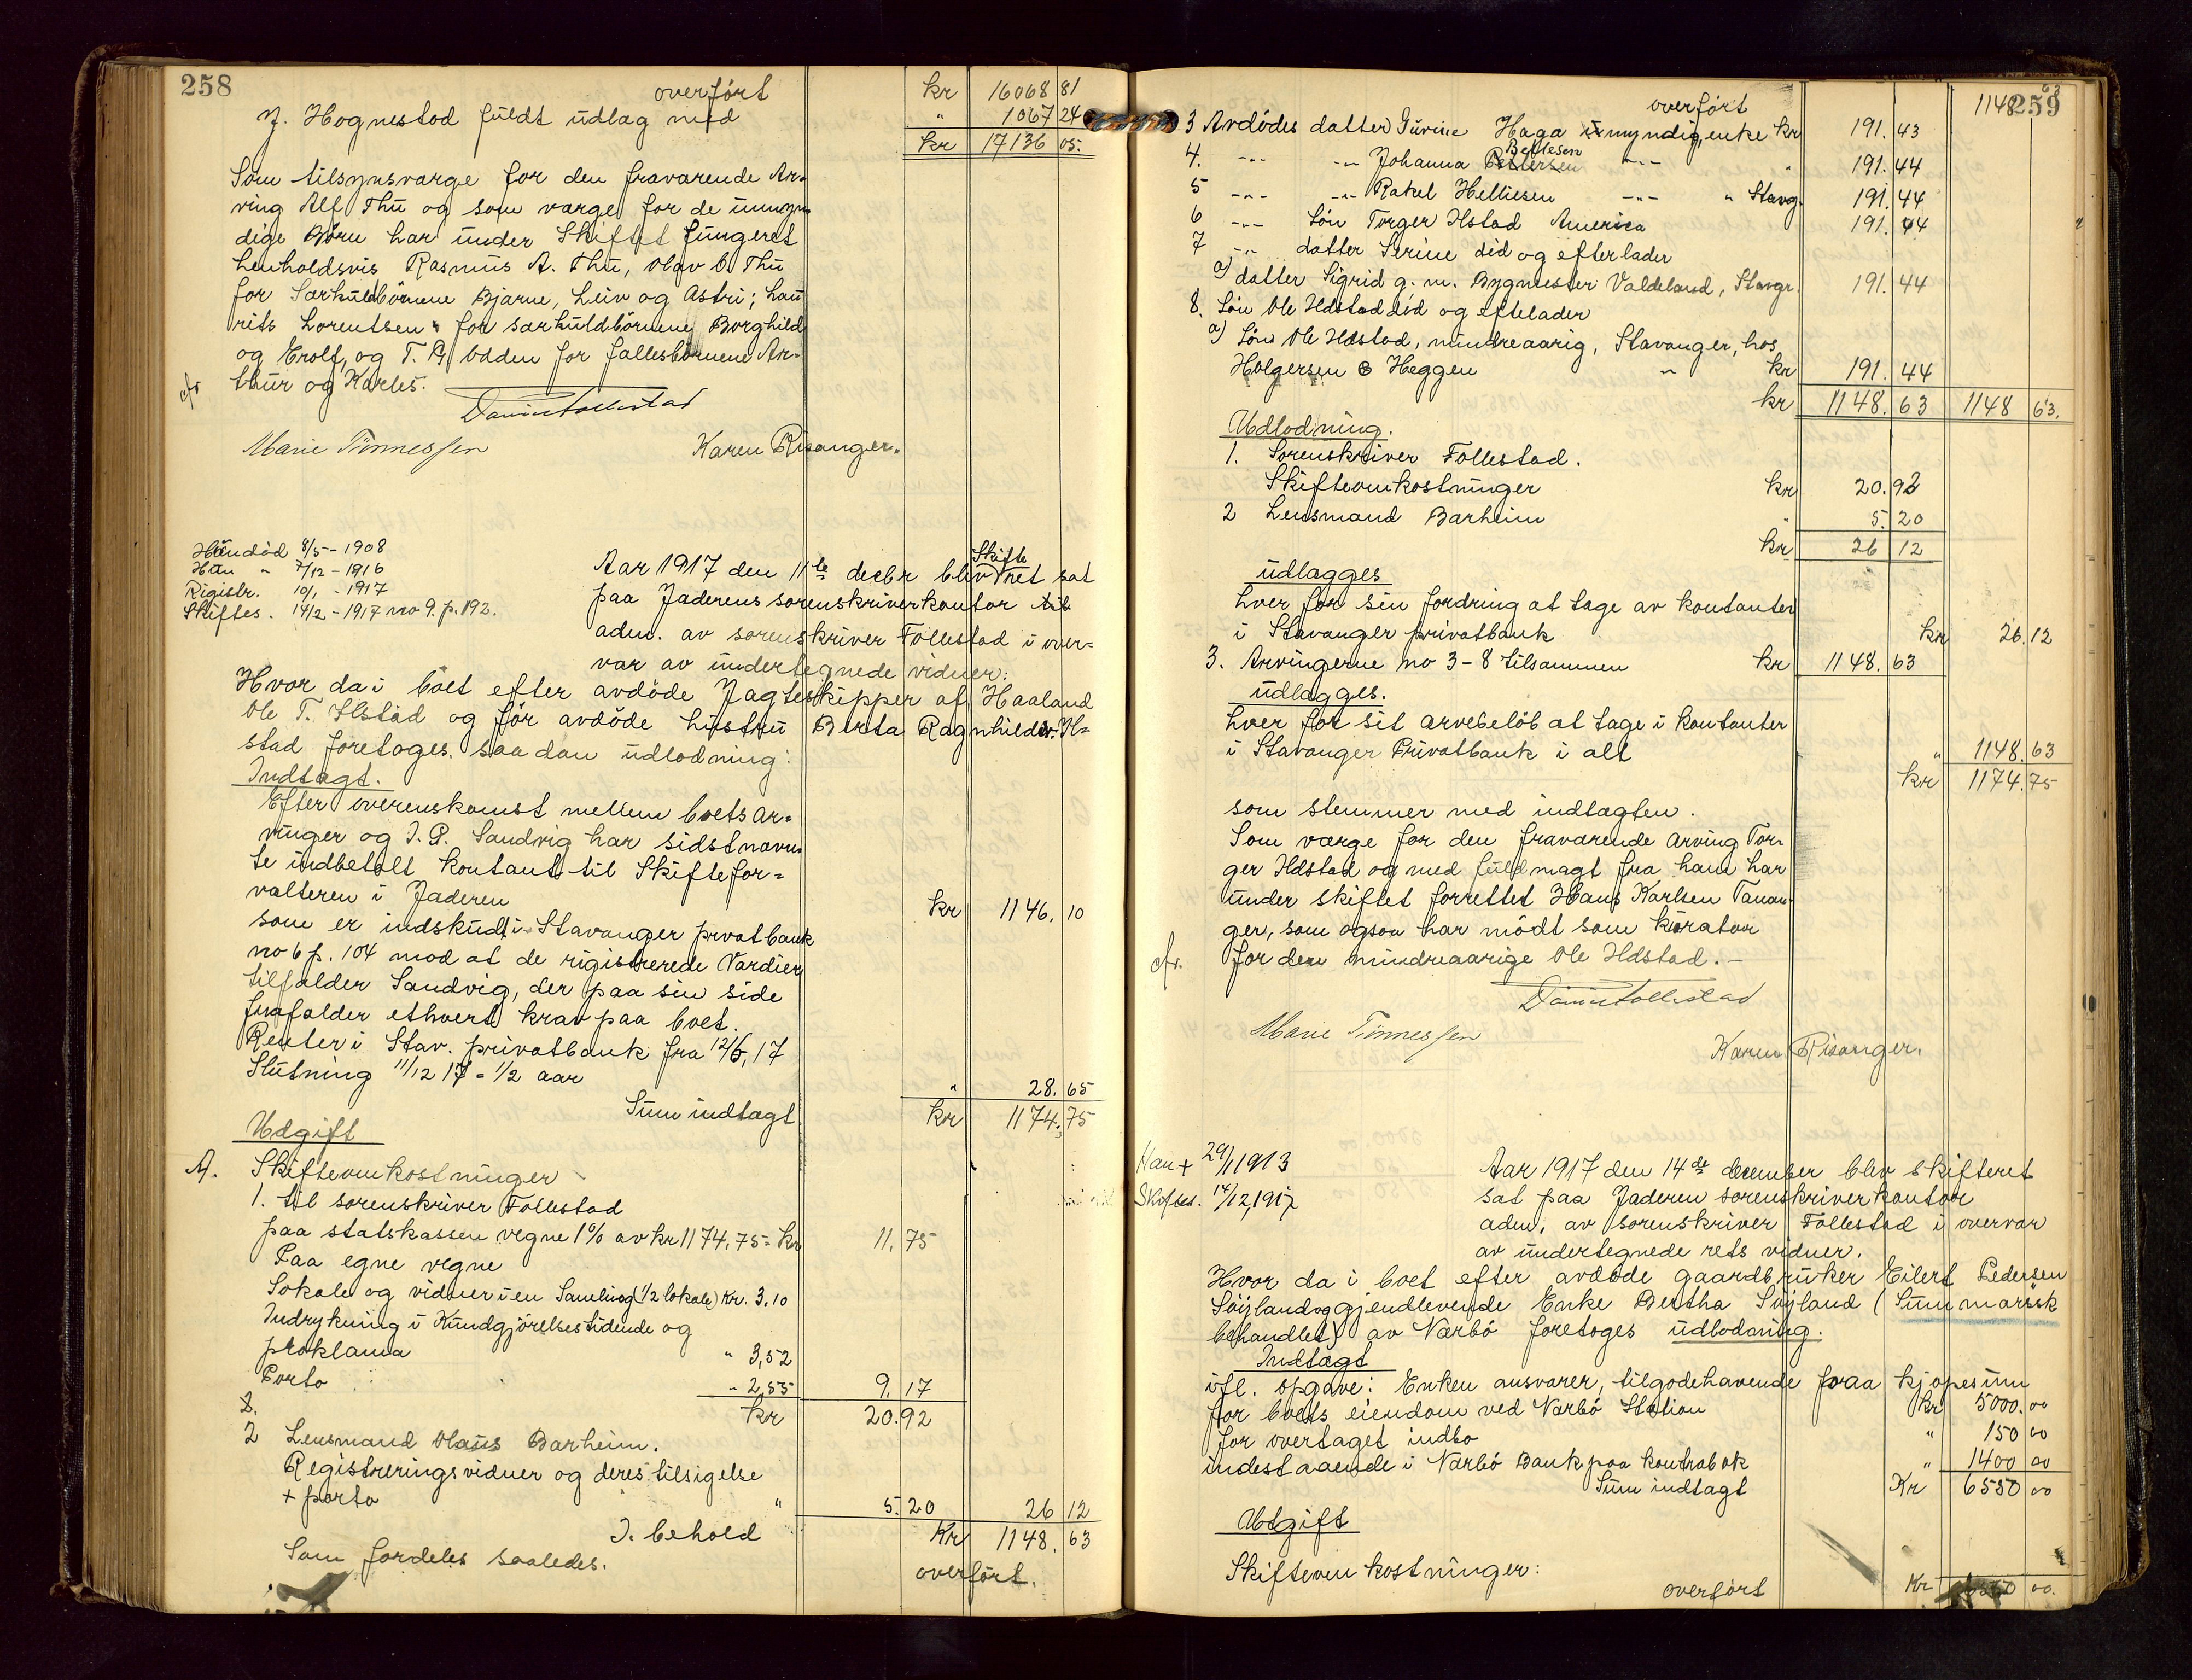 258
overført kr 16068 81
J. Hognestad fuldt udlag med " 1067 24
kr 17136 05.
Som tilsynsvarge for den fraværende Ar-
ving Alf Thu og som varge for de umyn-
dige Børn har under Skiftet fungeret
henholdsvis Rasmus A. Thu, Olav B. Thu
for Særkuldbørnene Bjarne, Leiv og Astri; Lau
rits Lorentsen for særkuldbørnene Borghild
og Erolf, og T. B. Odden for fallesbørnene Ar-
thur og Karles.
cfr
Daniel Follestad
Marie Tönnessen Karen Risanger.
Hun död 8/5 - 1908
Han " 7/12 - 1916
Rigistr. 10/1 - 1917
Skiftes. 14/2 - 1917 no 9. p. 192.
Aar 1917 den 11te decbr blev Skifte ret sat
paa Jaderens sorenskriverkontor
adm. av sorenskriver Follestad i over-
var av undertegnede vidner.
Hvor da i boet efter avdöde Jagteskipper af Haaland
Ole T. Ilstad og för avdöde hustru Berta Ragnhild Il-
stad foretoges saadan udlodning:
Indtagt.
Efter overenskomst mellem boets ar-
vinger og J. P. Sandvig har sidstnavn-
te indbetalt kontant til Skiftefor-
valteren i Jaderen kr 1146. 10
som er indskud i Stavanger prvatbank
no 6 p. 104 mod at de rigistrerede Vardier
tilfalder Sandvig, der paa sin side
frafalder ethvert krav paa boet.
Renter i Stav. privatbank fra 12/6, 17
Slutning 11/12 17 = 1/2 aar " 28. 65
Sum indtagt kr 1174. 75
Udgift
A. Skifteomkostninger
1. til sorenskriver Follestad
paa statskassen vegne 1% av kr 1174.75 = kr 11. 75
Paa egne vegne
Lokale og vidner i en Samling (1/2 lokale) Kr. 3,10
Indrykning i Kundgjörelsestidende og
proklama " 3,52
Porto - 2,55 9. 17
kr 20. 92
2 Lensmand Olaus Barheim.
Registreringsvidner og deres tilsigelse
+ porto " 5. 20 26 12
I. behold Kr 1148. 63
Som fordeles saaledes.
overført.
259
overført 1148 63
3 Avdödes datter Gurine Haga umyndig, enke kr 191. 43
4. --- --- Johanna Pettersen Bertlesen --- " 191. 44
5 --- --- Rakel Helliesen --- " Stavg. 191. 44
6 --- Sön Torger Ilstad America 191. 44
7 --- datter Serine död og efterlader
a) datter Sigrid g. m. Bygmester Valdeland, Stavgr. 191. 44
8. Sön Ole Ildstad död og eftelader
a) Sön Ole Ildstad, mindreaarig, Stavanger, hos
Holgersen & Heggen " kr 191. 44
kr 1148. 63 1148 63.
Udlodning.
1. Sorenskriver Follestad.
Skifteomkostninger kr 20. 92
2 Lensmand Barheim " 5. 20
kr 26 12
udlagges
hver for sin fordring at tage av kontanter
i Stavanger privatbank kr 26. 12
3. Arvingerne no 3-8 tilsammen kr 1148. 63
udlagges.
hver for sit arvebelöb at tage i kontanter
i Stavanger Privatbank i alt " 1148. 63
kr 1174. 75
som stemmer med indtagten.
Som varge for den fraværende arving Tor-
ger Ildstad og med fuldmagt fra ham har
under skiftet forrettet Hans Karlsen Tanan-
ger, som ogsaa har mödt som kurator
cfr. for den mindreaarige Ole Ildstad. -
Daniel Follestad
Marie Tönnessen
Karen Risanger.
Han + 29/1 1913
Skiftes. 14/12, 1917
Aar 1917 den 14de december blev skifteret
sat paa Jaderen sorenskriverkontor
adm. av sorenskriver Follestad i overvar
av undertegnede rets vidner.
Hvor da i boet efter avdöde gaardbruker Eilert Pedersen
Söyland og gjenlevende Enke Bertha Söyland (Summarisk
behandlet) av Narbö foretoges udlodning.
Indtagt
ifl. opgave: Enken ansvarer, tilgodehavende paa kjøpesum
for boets eiendom ved Narbö Station kr 5000. 00
for overtaget indbo " 150 00
indestaaende i Narbö Bank paa kontrabok " 1400 00
Sum indtagt Kr 6550 00
Utgift
Skifteomkostninger:
overført Kr 6550 00.